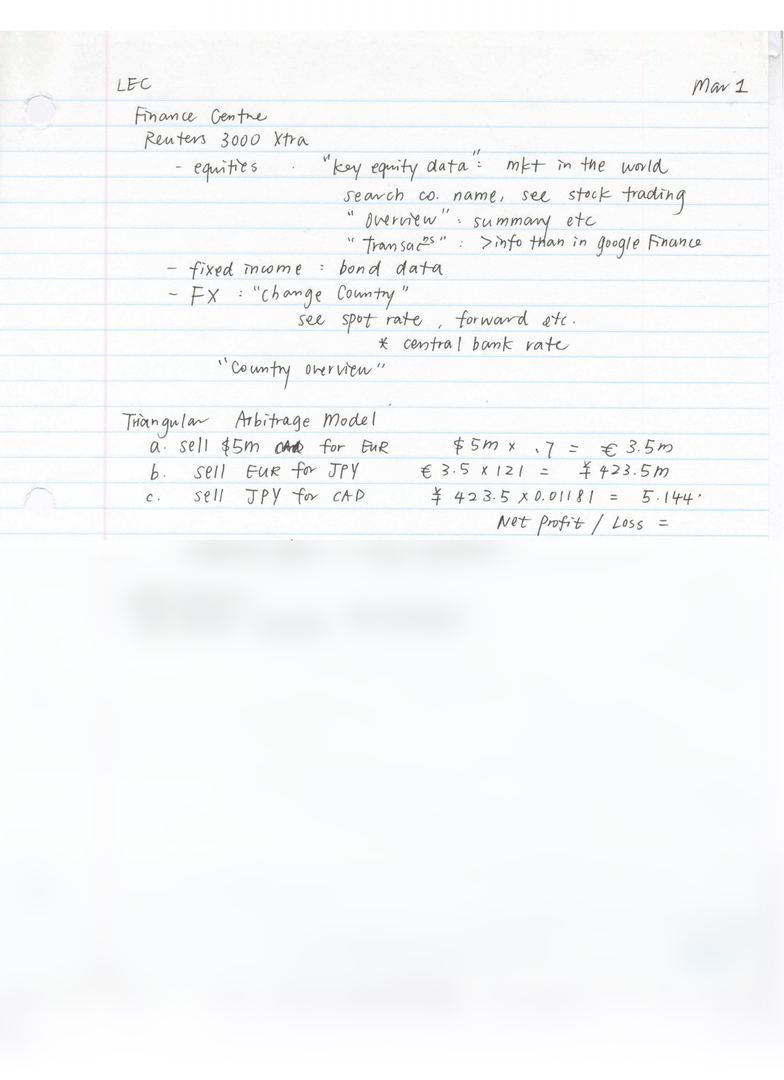 LEC Mar 1
Finance Centre
Reuters 3000 Xtra
- equities . "key equity data": mkt in the world
search co. name, see stock trading
"Overview": summary etc
"Transacns": >info than in google Finance
- fixed income : bond data
- FX : "Change Country"
see spot rate, forward etc.
* central bank rate
"Country overview"
Triangular Arbitrage Model
a. sell $5m for EUR $5m x .7 = € 3.5m
b. sell EUR for JPY € 3.5 x 121 = ¥ 423.5m
c. sell JPY for CAD ¥ 423.5 x 0.01181 = 5.144
Net Profit / Loss =